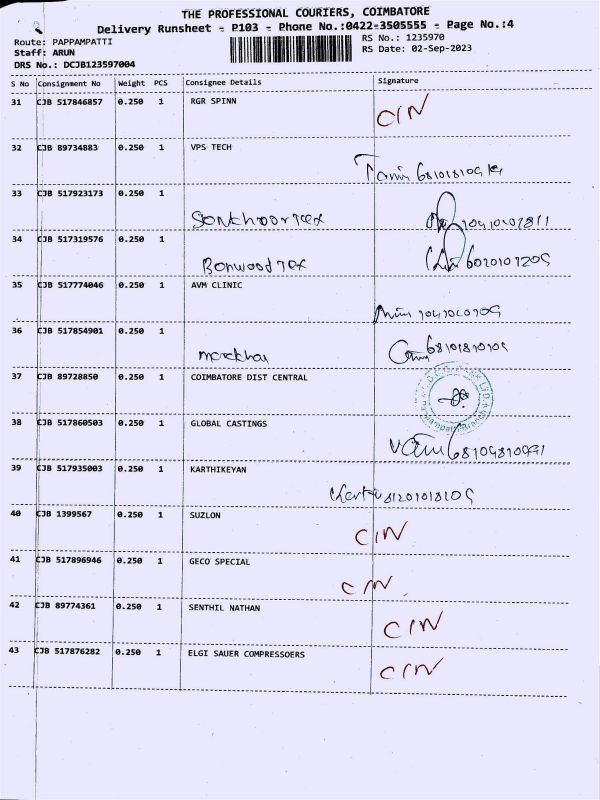 THE PROFESSIONAL COURIERS, COIMBATORE
Delivery Runsheet - P103 - Phone No.:0422-3505555 - Page No.:4
Route: PAPPAMPATTI
RS No.: 1235970
Staff: ARUN
RS Date: 02-Sep-2023
DRS No.: DCJB123597004
S No Consignment No Weight PCS Consignee Details Signature
31 CJB 517846857 0.250 1 RGR SPINN
CIN
32 CJB 89734883 0.250 1 VPS TECH
33 CJB 517923173 0.250 1
34 CJB 517319576 0.250 1
Bonwood Tex
35 CJB 517774046 0.250 1 AVM CLINIC
36 CJB 517854901 0.250 1
37 CJB 89728850 0.250 1 COIMBATORE DIST CENTRAL
38 CJB 517860503 0.250 1 GLOBAL CASTINGS
39 CJB 517935003 0.250 1 KARTHIKEYAN
40 CJB 1399567 0.250 1 SUZLON
CIN
41 CJB 517896946 0.250 1 GECO SPECIAL
CIN
42 CJB 89774361 0.250 1 SENTHIL NATHAN
CIN
43 CJB 517876282 0.250 1 ELGI SAUER COMPRESSOERS
CIN